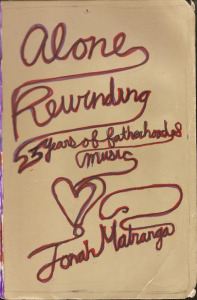 Alone
Rewinding
25 years of fatherhood &
music
Jonah Matranga